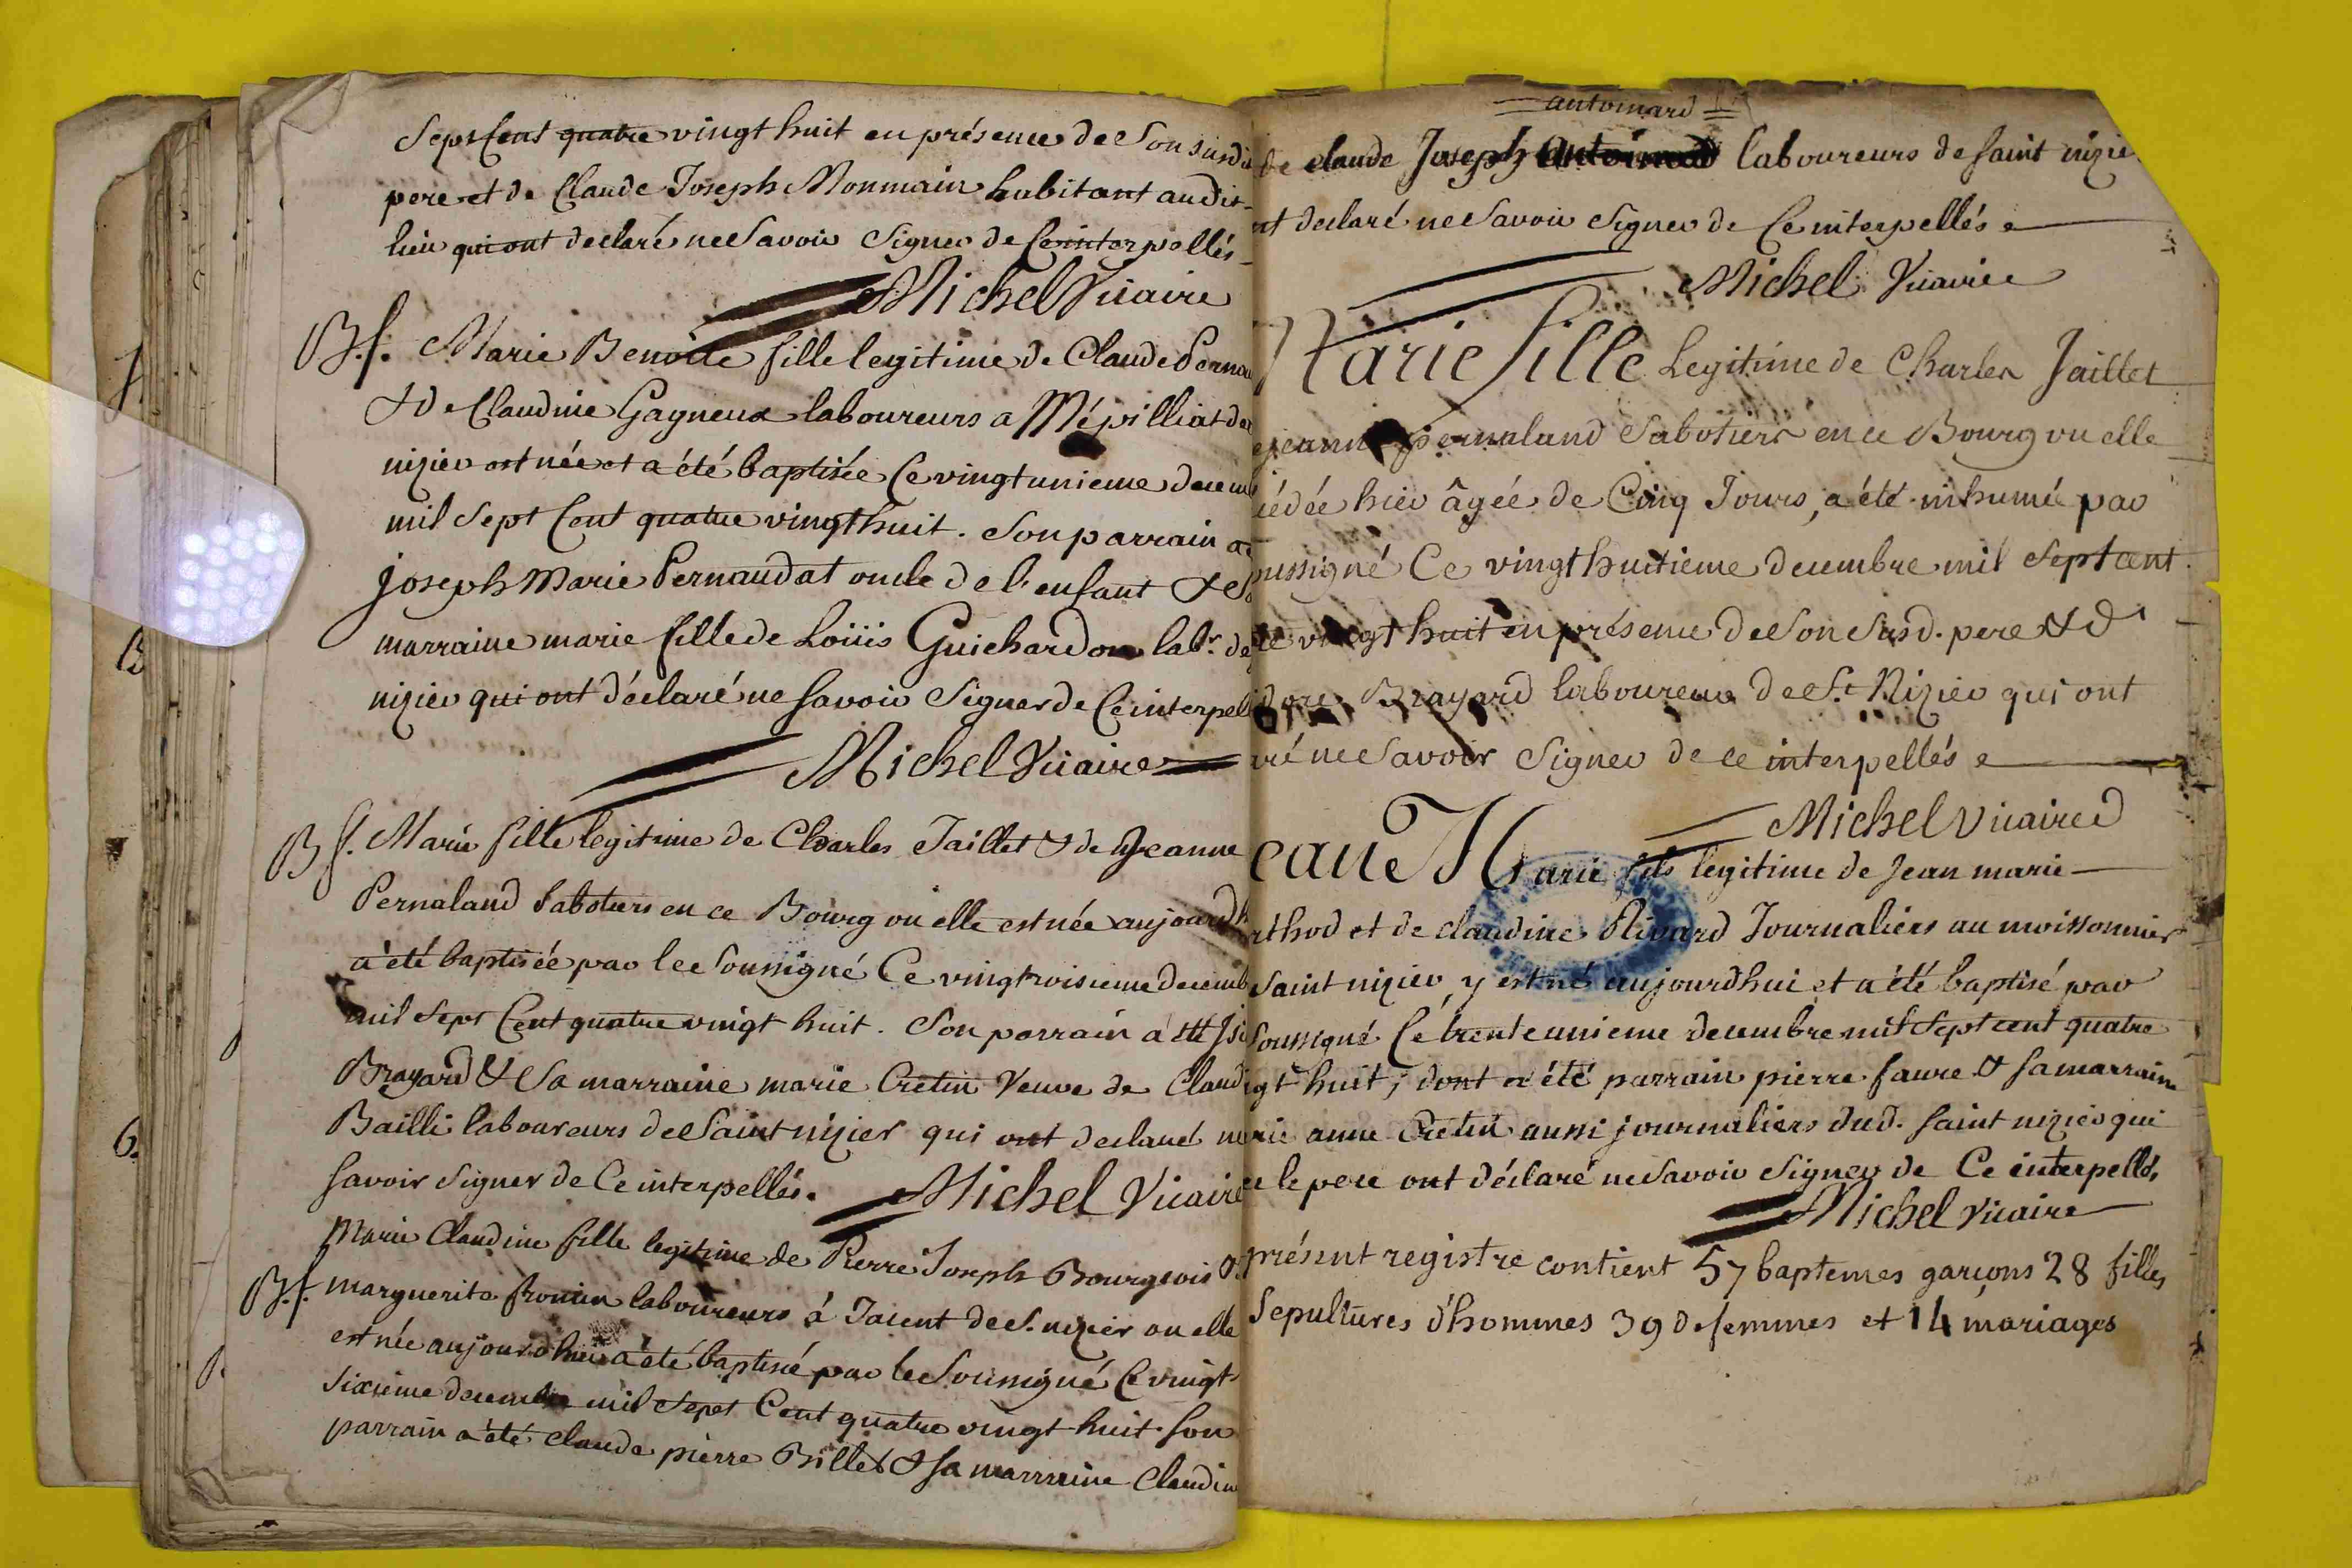 Sept Cent quatre vingt huit en présence de Son susdit
pere et de Claude Joseph Monmain habitant audit
lieu qui ont declaré ne Savoir Signer de Ce interpellés
Michel Vicaire
B. f. Marie Benoite fille legitime de Claude Perna
& de Claudine Gagneux laboureurs a Mépilliat de
nizier est née et a été baptisée Ce vingt unieme decemb
mil Sept Cent quatre vingt huit . Son parrain a
joseph Marie Pernaudat oncle de l'enfant & Sa
marraine marie fille de Loüis Guichardon labr. de
nizier qui ont déclaré ne Savoir Signer de Ce interpel
Michel Vicaire
B f. Marie fille legitime de Charles Jaillet & de Jeanne
Pernaland Sabotiers en ce Bourg ou elle est née aujourdh
a été baptisée par le Soussigné Ce vingt troisieme decemb
mil Sept Cent quatre vingt huit . Son parrain a été Isi
Brayard & Sa marraine marie Cretin Veuve de Claud
Bailli laboureurs de Saint nizier qui ont declaré ne
Savoir Signer de Ce interpellés.
Michel Vicaire
Marie Claudine fille legitime de Pierre Joseph Bourgeois &
B. f. marguerite laboureurs à Jacent de S. nizier ou elle
est née aujourdhui a été baptisée par le Soussigné Ce vingt
Sixieme decembre mil Sept Cent quatre vingt huit . Son
parrain a été Claude pierre Billet & Sa marraine Claudin
antoinard
de claude Joseph laboureurs de Saint nizie
nt declaré ne Savoir Signer de Ce interpellés
Michel Vicaire
Marie fille Legitime de Charles Jaillet
e jeanne pernaland Sabotiers en ce Bourg ou elle
cédée hier âgée de Cinq Jours, a été inhumée par
oussigné Ce vingt huitieme decembre mil Sept cent
re vingt huit en présence de Son Susd. pere & d'
idore Brayard laboureur de St Nizier qui ont
ré ne Savoir Signer de ce interpellés
Michel Vicaire
ean Marie fils legitime de Jean marie
rthod et de claudine Rivard Journaliers au moissonnier
Saint nizier, y est né aujourdhui et a été baptisé par
Soussigné Ce trente unieme decembre mil Sept cent quatre
gt huit, dont a été parrain pierre faure & Sa marraine
rie anne Cretin aussi journaliers dud. Saint nizier qui
e le pere ont déclaré ne Savoir Signer de Ce interpellés,
Michel Vicaire
présent registre contient 57 baptemes garçons 28 filles
Sepultures d'hommes 39 de femmes et 14 mariages